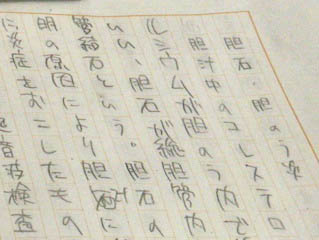 胆石・胆のう炎
胆汁中のコレステロ
ルシウムが胆のう内で
いい、胆石が総胆管内
管結石という。胆石の
明の原因により胆に
に炎症をおこしたもの
音波検査